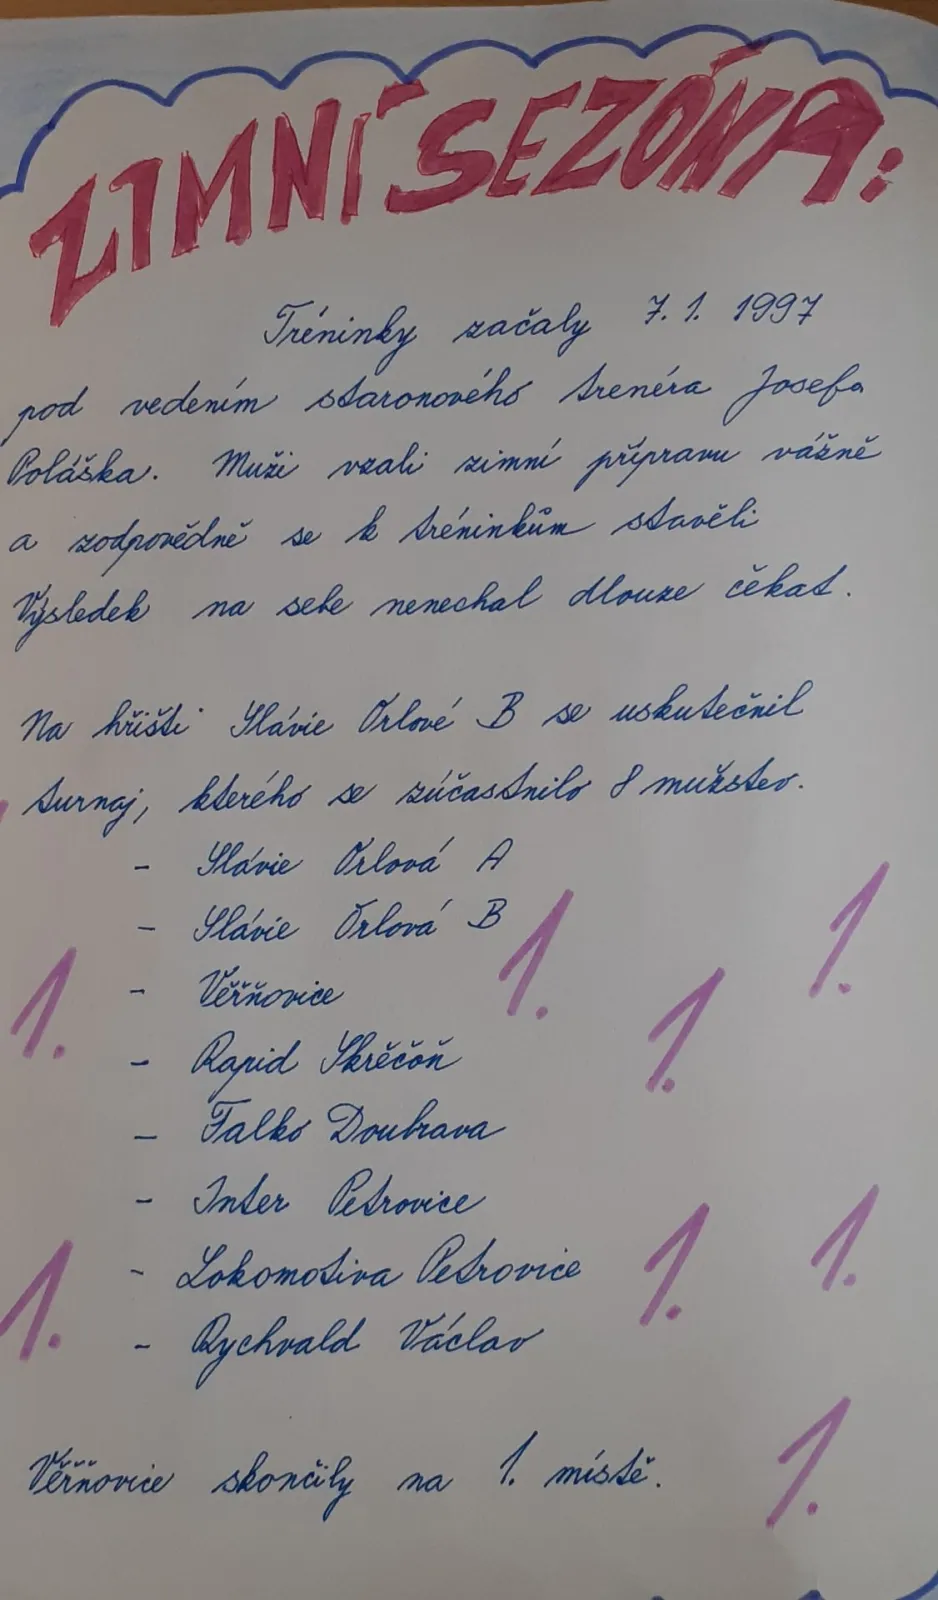 ZIMNÍ SEZÓNA:
Tréninky začaly 7. 1. 1997
pod vedením staronového trenéra Josefa
Poláška. Muži vzali zimní přípravu vážně
a zodpovědně se k tréninkům stavěli
Výsledek na sebe nenechal dlouze čekat.
Na hřišti Slávie Orlové B se uskutečnil
turnaj, kterého se zúčastnilo 8 mužstev.
- Slávie Orlová A
- Slávie Orlová B
1. 1.
- Věřňovice
1. 1.
- Rapid Skřečoň
- Falko Doubrava
- Inter Petrovice
1. 1.
- Lokomotiva Petrovice
1.
- Rychvald Václav
Věřňovice skončily na 1. místě.
1.